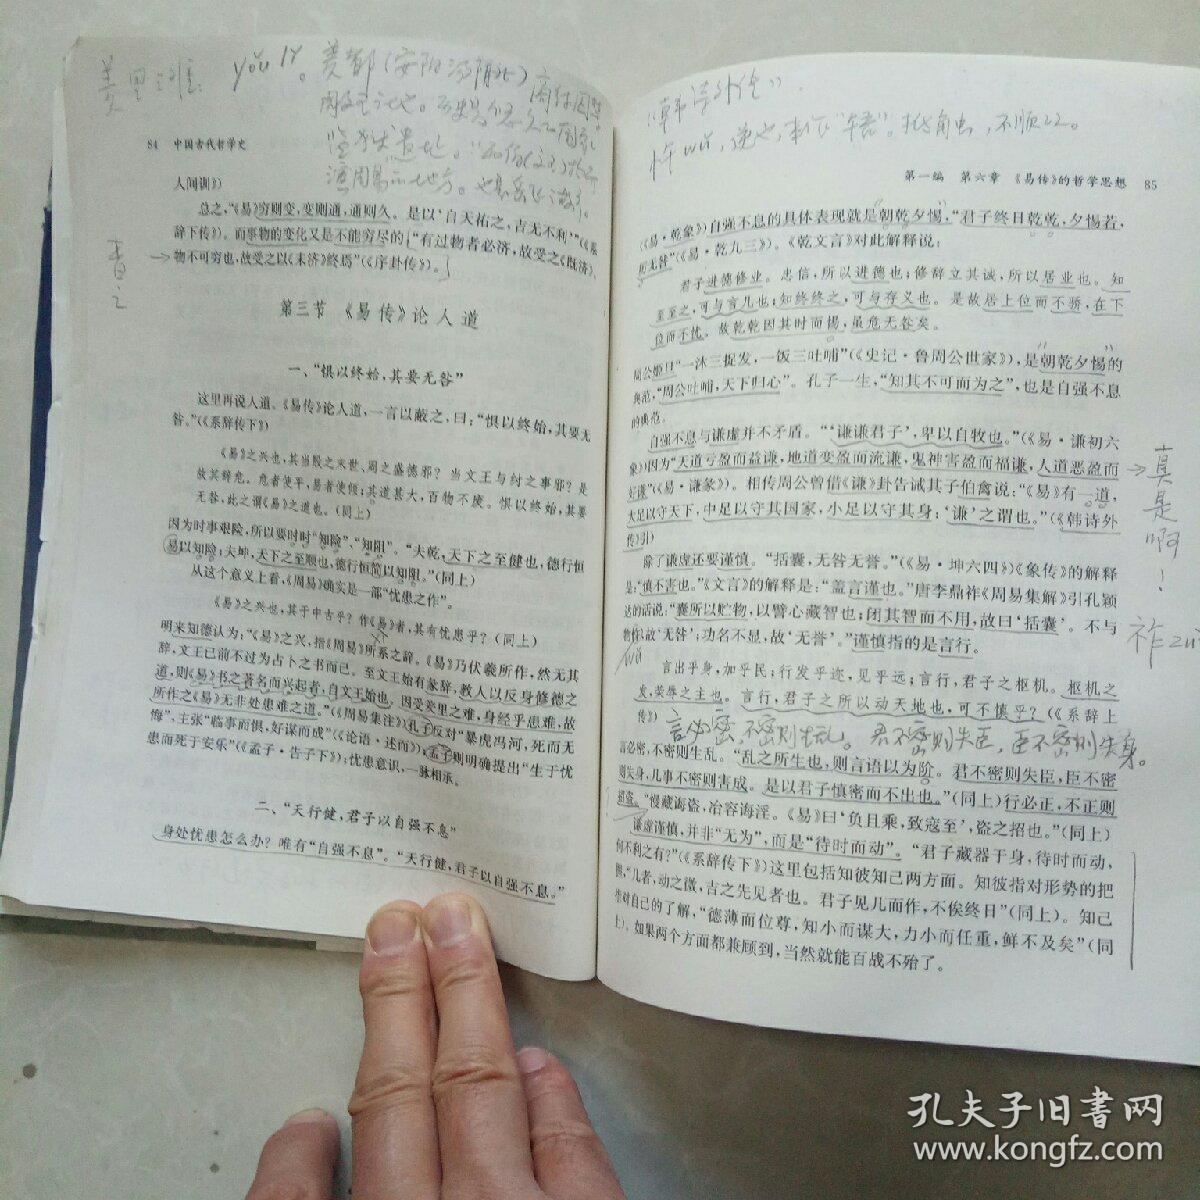 羑里之难: yǒu lǐ。羑都(安阳汤阴北)商纣囚禁
84 中国古代哲学史
人间训》)
总之,“《易》穷则变,变则通,通则久。是以‘自天祐之,吉无不利’”(《系
辞下传》)。而事物的变化又是不能穷尽的,“有过物者必济,故受之《既济》,
物不可穷也,故受之以《未济》终焉”(《序卦传》)。
第三节 《易传》论人道
一、“惧以终始,其要无咎”
这里再说人道。《易传》论人道,一言以蔽之,曰:“惧以终始,其要无
咎。”(《系辞传下》)
《易》之兴也,其当殷之末世、周之盛德邪?当文王与纣之事邪?是
故其辞危。危者使平,易者使倾;其道甚大,百物不废。惧以终始,其要
无咎,此之谓《易》之道也。(同上)
因为时事艰险,所以要时时“知险”、“知阻”。“夫乾,天下之至健也,德行恒
易以知险;夫坤,天下之至顺也,德行恒简以知阻。”(同上)
从这个意义上看,《周易》确实是一部“忧患之作”。
《易》之兴也,其于中古乎?作《易》者,其有忧患乎?(同上)
明来知德认为:“《易》之兴,指《周易》所系之辞。《易》乃伏羲所作,然无其
辞,文王已前不过为占卜之书而已。至文王始有彖辞,教人以反身修德之
道,则《易》书之著名而兴起者,自文王始也。因受羑里之难,身经乎患难,故
所作之《易》无非处患难之道。”(《周易集注》)孔子反对“暴虎冯河,死而无
悔”,主张“临事而惧,好谋而成”(《论语·述而》);孟子则明确提出“生于忧
患而死于安乐”(《孟子·告子下》);忧患意识,一脉相承。
二、“天行健,君子以自强不息”
身处忧患怎么办?唯有“自强不息”。“天行健,君子以自强不息。”
《韩诗外传》
第一编 第六章 《易传》的哲学思想 85
(《易·乾象》)自强不息的具体表现就是“朝乾夕惕”,“君子终日乾乾,夕惕若,
厉无咎”(《易·乾九三》)。《乾文言》对此解释说:
君子进德修业。忠信,所以进德也;修辞立其诚,所以居业也。知
至至之,可与言几也;知终终之,可与存义也。是故居上位而不骄,在下
位而不忧。故乾乾因其时而惕,虽危无咎矣。
周公姬旦“一沐三捉发,一饭三吐哺”(《史记·鲁周公世家》),是“朝乾夕惕”的
典范,“周公吐哺,天下归心”。孔子一生,“知其不可而为之”,也是自强不息
的典范。
自强不息与谦虚并不矛盾。“‘谦谦君子’,卑以自牧也。”(《易·谦初六
象》)因为“天道亏盈而益谦,地道变盈而流谦,鬼神害盈而福谦,人道恶盈而
好谦”(《易·谦彖》)。相传周公曾借《谦》卦告诫其子伯禽说:“《易》有一道,
大足以守天下,中足以守其国家,小足以守其身:‘谦’之谓也。”(《韩诗外
传》引)
真是啊!
除了谦虚还要谨慎。“括囊,无咎无誉。”(《易·坤六四》)《象传》的解释
是:“慎不害也。”《文言》的解释是:“盖言谨也。”唐李鼎祚《周易集解》引孔颖
达的话说,“囊所以贮物,以譬心藏智也;闭其智而不用,故曰‘括囊’。不与
物忤,故‘无咎’;功名不显,故‘无誉’。”谨慎指的是言行。
言出乎身,加乎民;行发乎迩,见乎远;言行,君子之枢机。枢机之
发,荣辱之主也。言行,君子之所以动天地也,可不慎乎?(《系辞上
传》)
言必密,不密则生乱。君不密则失臣,臣不密则失身。
言必密,不密则生乱。“乱之所生也,则言语以为阶。君不密则失臣,臣不密
则失身,几事不密则害成。是以君子慎密而不出也。”(同上)行必正,不正则
招盗。“慢藏诲盗,冶容诲淫。《易》曰‘负且乘,致寇至’,盗之招也。”(同上)
谦虚谨慎,并非“无为”,而是“待时而动”。“君子藏器于身,待时而动,
何不利之有?”(《系辞传下》)这里包括知彼知己两方面。知彼指对形势的把
握,“几者,动之微,吉之先见者也。君子见几而作,不俟终日”(同上)。知己
指对自己的了解,“德薄而位尊,知小而谋大,力小而任重,鲜不及矣”(同
上)。如果两个方面都兼顾到,当然就能百战不殆了。
孔夫子旧书网
www.kongfz.com